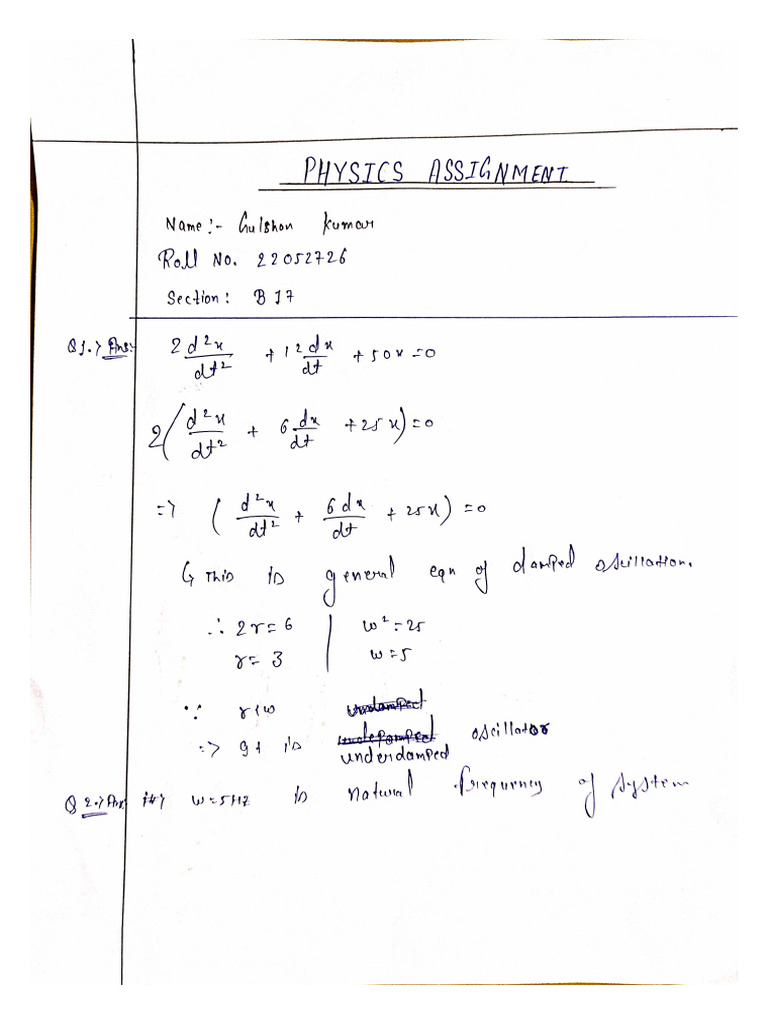 PHYSICS ASSIGNMENT
Name:- Gulshan Kumar
Roll No. 22052726
Section: B17
Q1.> Ans:- 2 d²x/dt² + 12 dx/dt + 50x = 0
2(d²x/dt² + 6 dx/dt + 25x) = 0
=> (d²x/dt² + 6dx/dt + 25x) = 0
↳ This is general eqn of damped oscillation.
∴ 2r = 6 | w² = 25
r = 3 | w = 5
∵ r < w
=> It is underdamped oscillator
Q2.> Ans w = 5Hz is natural frequency of system